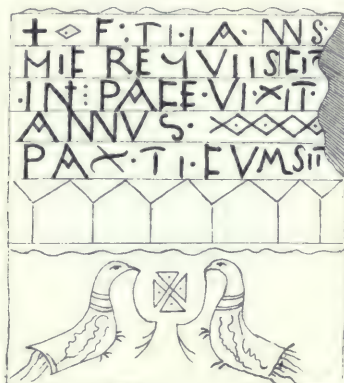 + ◇ F : TI · IA · NNS ·
MIE REMVIISEIT
· IN : PAEE · VI · XIT ·
ANNVS · XXXX
PAX · TI · EVMSIT